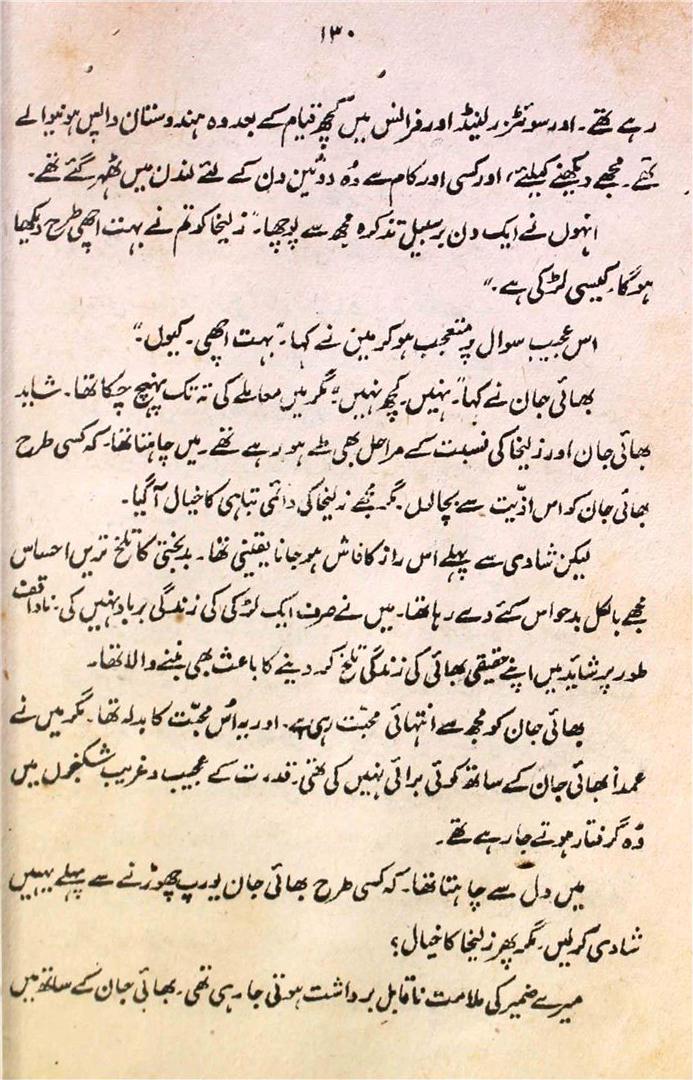 ۱۳۰
رہے تھے۔ اور سوئٹزرلینڈ اور فرانس میں کچھ قیام کے بعد وہ ہندوستان واپس ہونیوالے
تھے۔ مجھے دیکھنے کیلئے، اور کسی اور کام سے وُہ دو تین دن کے لئے لندن میں ٹھہر گئے تھے۔
انہوں نے ایک دن برسبیل تذکرہ مجھ سے پوچھا۔ "زلیخا کو تم نے بہت اچھی طرح دیکھا
ہوگا۔ کیسی لڑکی ہے۔"
اس عجیب سوال پر متعجب ہو کر مین نے کہا۔ "بہت اچھی۔ کیوں۔"
بھائی جان نے کہا "۔ نہیں۔ کچھ نہیں"؛ مگر میں معاملے کی تہ تک پہنچ چکا تھا۔ شاید
بھائی جان اور زلیخا کی نسبت کے مراحل بھی طے ہو رہے تھے۔ میں چاہتا تھا۔ کہ کسی طرح
بھائی جان کو اس اذیّت سے بچالوں۔ مگر مجھے زلیخا کی دائمی تباہی کا خیال آگیا۔
لیکن شادی سے پہلے اس راز کا فاش ہو جانا یقینی تھا۔ بدبختی کا تلخ تریں احساس
مجھے بالکل بدحواس کئے دے رہا تھا۔ میں نے صرف ایک لڑکی کی زندگی برباد نہیں کی: ناواقف
طور پر شاید میں اپنے حقیقی بھائی کی زندگی تلخ کر دینے کا باعث بھی بننے والا تھا۔
بھائی جان کو مجھ سے انتہائی محبت رہی ہے۔ اور یہ اُس محبّت کا بدلہ تھا۔ مگر میں نے
عمداً بھائی جان کے ساتھ کوئی برائی نہیں کی تھی۔ قدرت کے عجیب و غریب شکنجوں میں
وُہ گرفتار ہوتے جا رہے تھے۔
میں دل سے چاہتا تھا۔ کہ کسی طرح بھائی جان یورپ چھوڑنے سے پہلے یہیں
شادی کر لیں۔ مگر پھر زلیخا کا خیال؟
میرے ضمیر کی ملامت ناقابل برداشت ہوتی جا رہی تھی۔ بھائی جان کے ساتھ میں